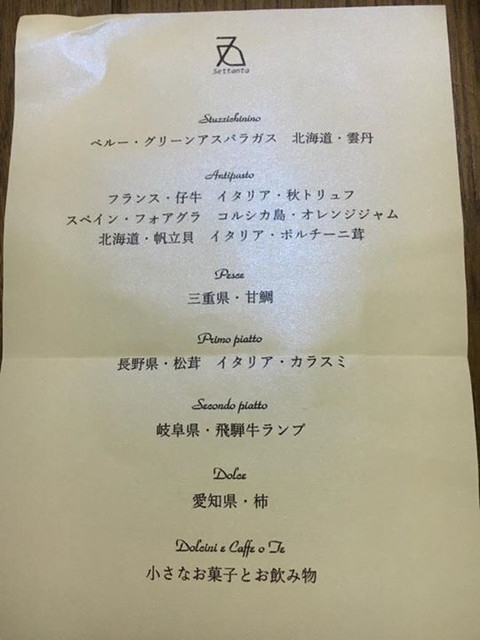 Settanta
Stuzzichinino
ペルー・グリーンアスパラガス　北海道・雲丹
Antipasto
フランス・仔牛　イタリア・秋トリュフ
スペイン・フォアグラ　コルシカ島・オレンジジャム
北海道・帆立貝　イタリア・ポルチーニ茸
Pesce
三重県・甘鯛
Primo piatto
長野県・松茸　イタリア・カラスミ
Secondo piatto
岐阜県・飛騨牛ランプ
Dolce
愛知県・柿
Dolcini e Caffe o Te
小さなお菓子とお飲み物